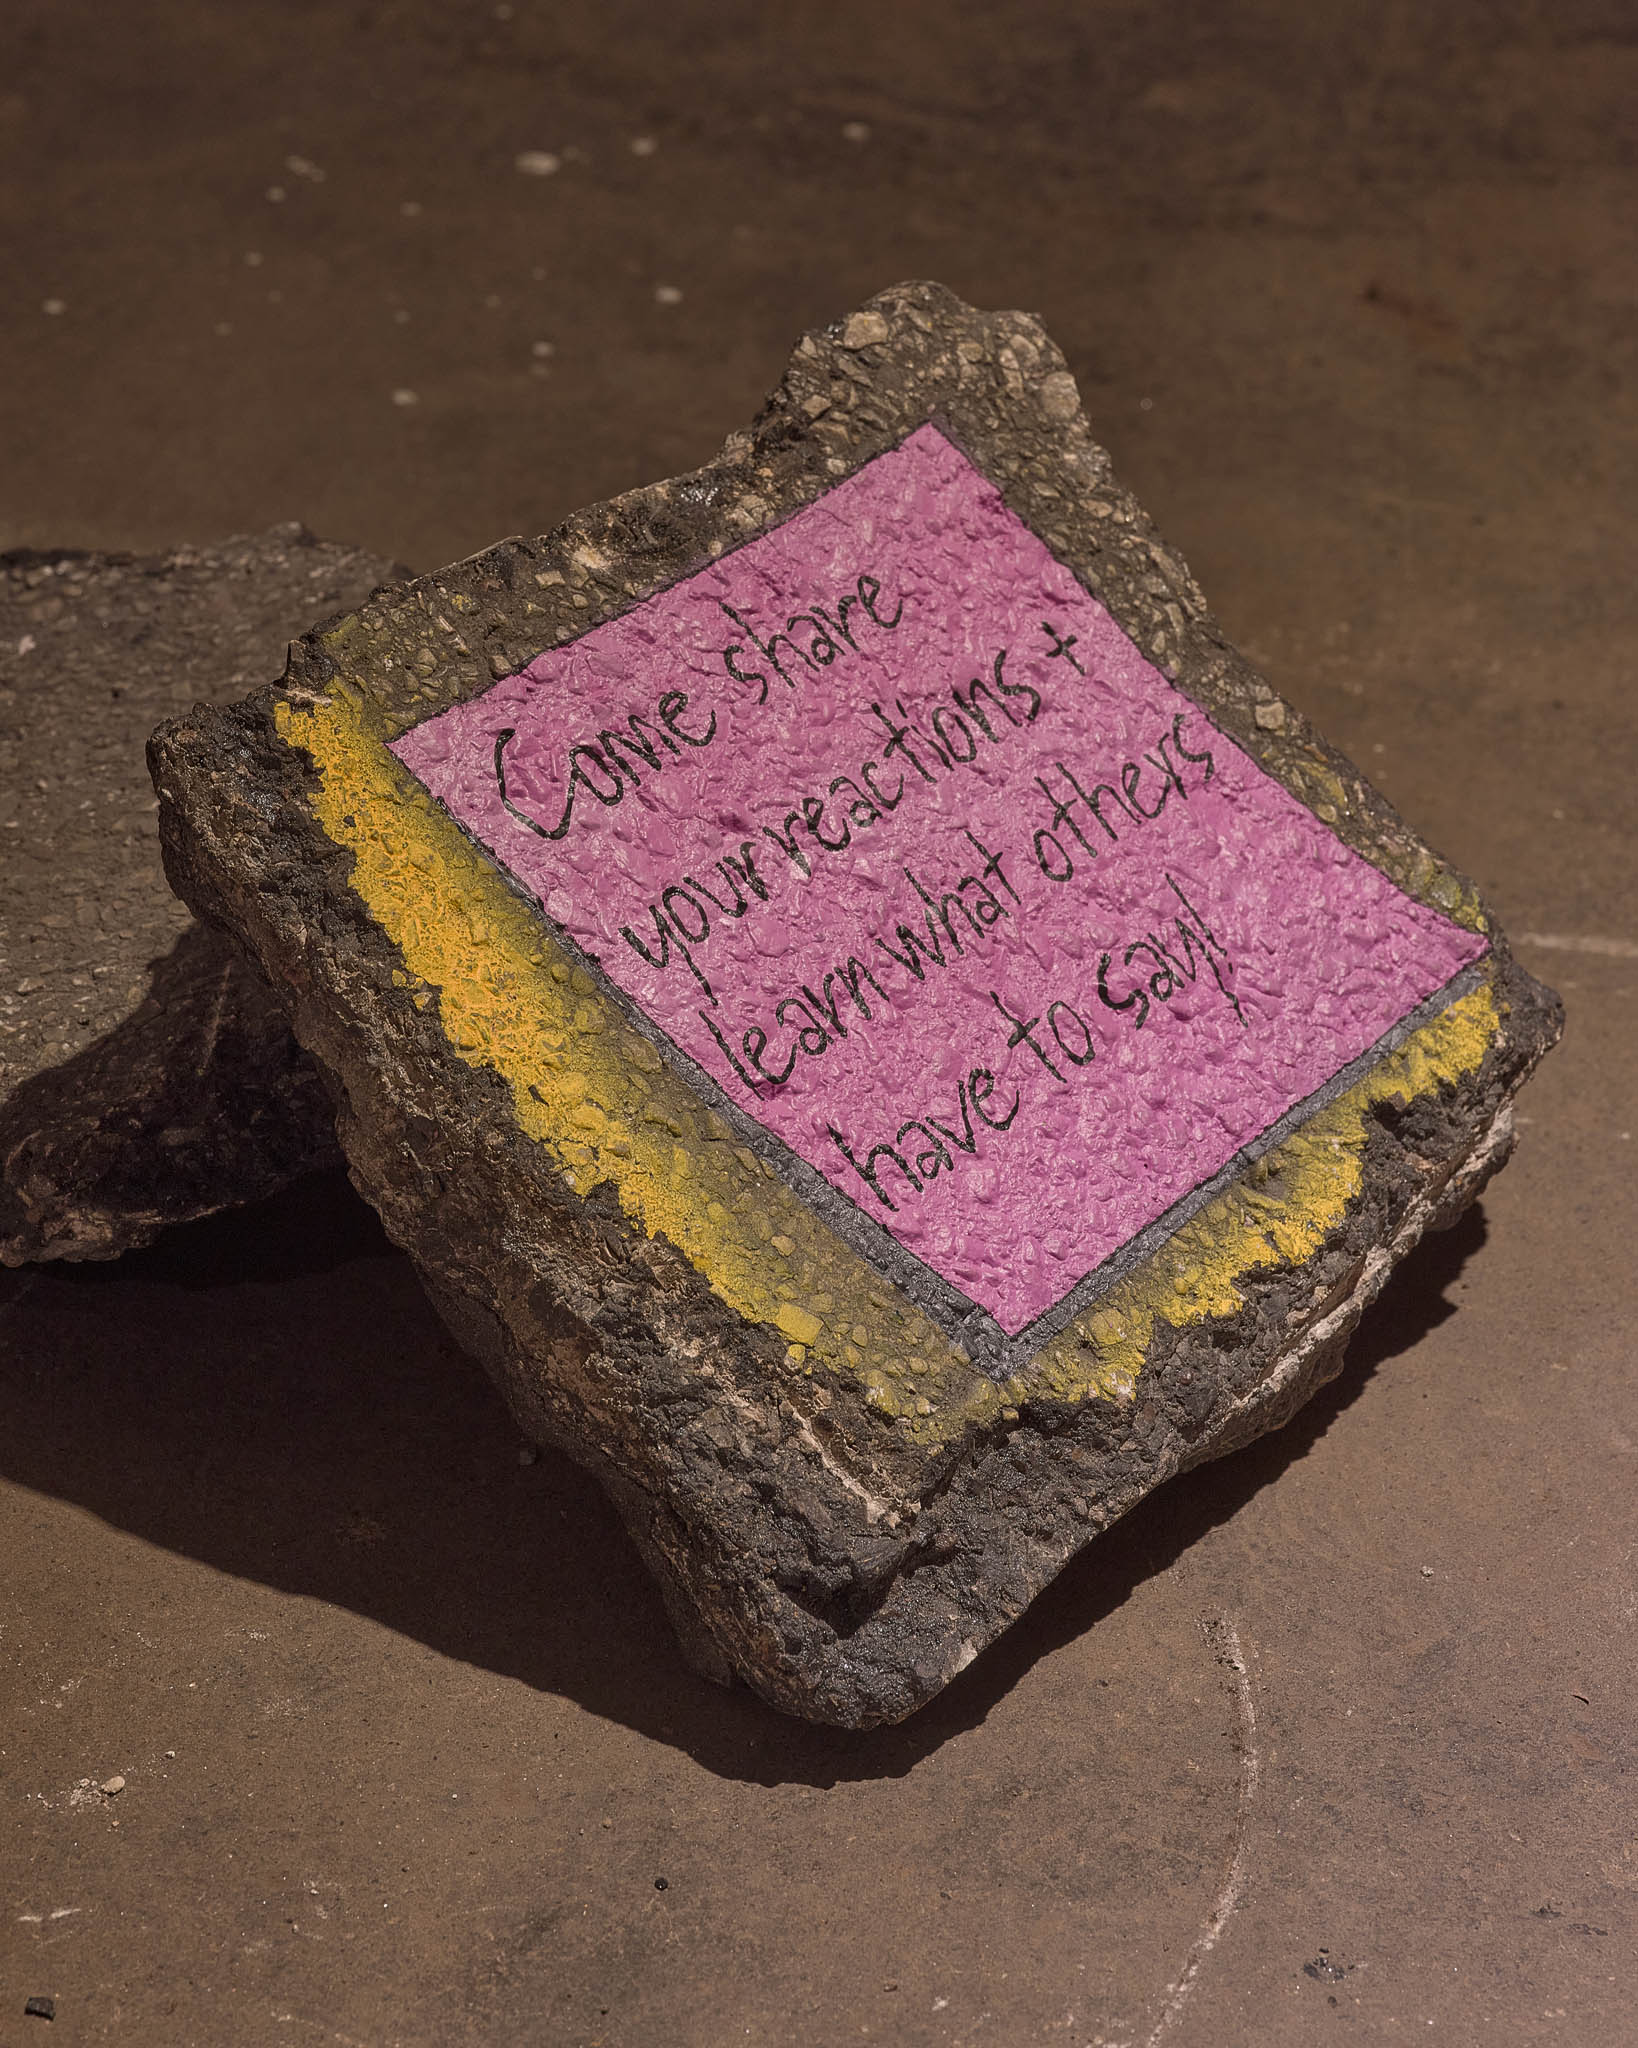 Come share
your reactions +
learn what others
have to say!